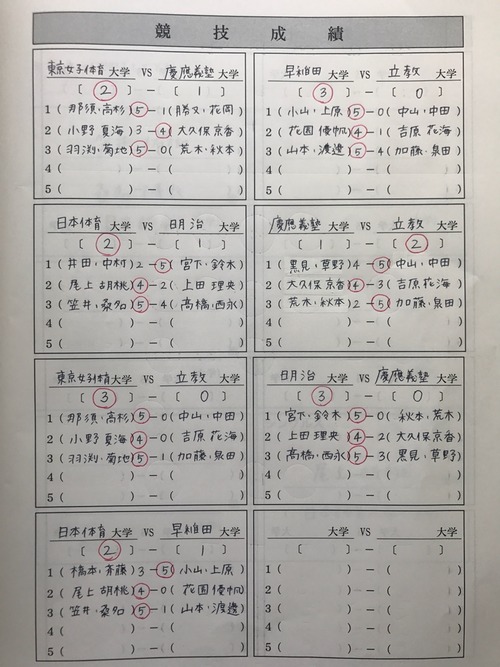 競技成績
東京女子体育大学 VS 慶應義塾大学
〔 2 〕 ― 〔 1 〕
1 ( 那須・高杉) 5 ― 1 (勝又・花岡 )
2 ( 小野 夏海 ) 3 ― 4 (大久保京香 )
3 ( 羽渕・菊地) 5 ― 0 (荒木・秋本 )
4 ( ) ― ( )
5 ( ) ― ( )
早稲田大学 VS 立教大学
〔 3 〕 ― 〔 0 〕
1 ( 小山・上原 ) 5 ― 0 (中山・中田 )
2 ( 花園 優帆) 4 ― 1 (吉原 花海 )
3 ( 山本・渡邉 ) 5 ― 4 (加藤・泉田 )
4 ( ) ― ( )
5 ( ) ― ( )
日本体育大学 VS 明治大学
〔 2 〕 ― 〔 1 〕
1 ( 井田・中村) 2 ― 5 (宮下・鈴木 )
2 ( 尾上 胡桃) 4 ― 2 (上田 理央 )
3 ( 笠井・桑名) 5 ― 4 (高橋・西永 )
4 ( ) ― ( )
5 ( ) ― ( )
慶應義塾大学 VS 立教大学
〔 1 〕 ― 〔 2 〕
1 ( 黒見・草野) 4 ― 5 (中山・中田 )
2 ( 大久保京香) 4 ― 3 (吉原花海 )
3 ( 荒木・秋本) 2 ― 5 (加藤・泉田 )
4 ( ) ― ( )
5 ( ) ― ( )
東京女子体育大学 VS 立教大学
〔 3 〕 ― 〔 0 〕
1 ( 那須・高杉) 5 ― 0 (中山・中田 )
2 ( 小野 夏海) 4 ― 0 (吉原 花海 )
3 ( 羽渕・菊地) 5 ― 1 (加藤・泉田 )
4 ( ) ― ( )
5 ( ) ― ( )
明治大学 VS 慶應義塾大学
〔 3 〕 ― 〔 0 〕
1 ( 宮下・鈴木) 5 ― 0 (秋本・荒木 )
2 ( 上田 理央) 4 ― 2 (大久保京香 )
3 ( 高橋・西永) 5 ― 3 (黒見・草野 )
4 ( ) ― ( )
5 ( ) ― ( )
日本体育大学 VS 早稲田大学
〔 2 〕 ― 〔 1 〕
1 ( 橋本・斉藤) 3 ― 5 (小山・上原 )
2 ( 尾上 胡桃) 4 ― 0 (花園優帆 )
3 ( 笠井・桑名) 5 ― 1 (山本・渡邉 )
4 ( ) ― ( )
5 ( ) ― ( )
大学 VS 大学
〔 〕 ― 〔 〕
1 ( ) ― ( )
2 ( ) ― ( )
3 ( ) ― ( )
4 ( ) ― ( )
5 ( ) ― ( )